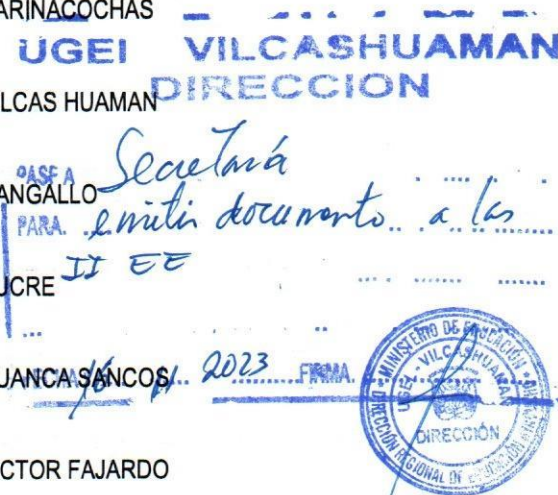 ARINACOCHAS
UGEl VILCASHUAMAN
DIRECCION
LCAS HUAMAN
PASE A Secretaría
ANGALLO
PARA. emitir documento a las
II EE
UCRE
UANCA SANCOS 2023 FIRMA.
MINISTERIO DE EDUCACIÓN
UGEL - VILCASHUAMAN
DIRECCIÓN
DIRECCIÓN REGIONAL DE EDUCACIÓN
CTOR FAJARDO